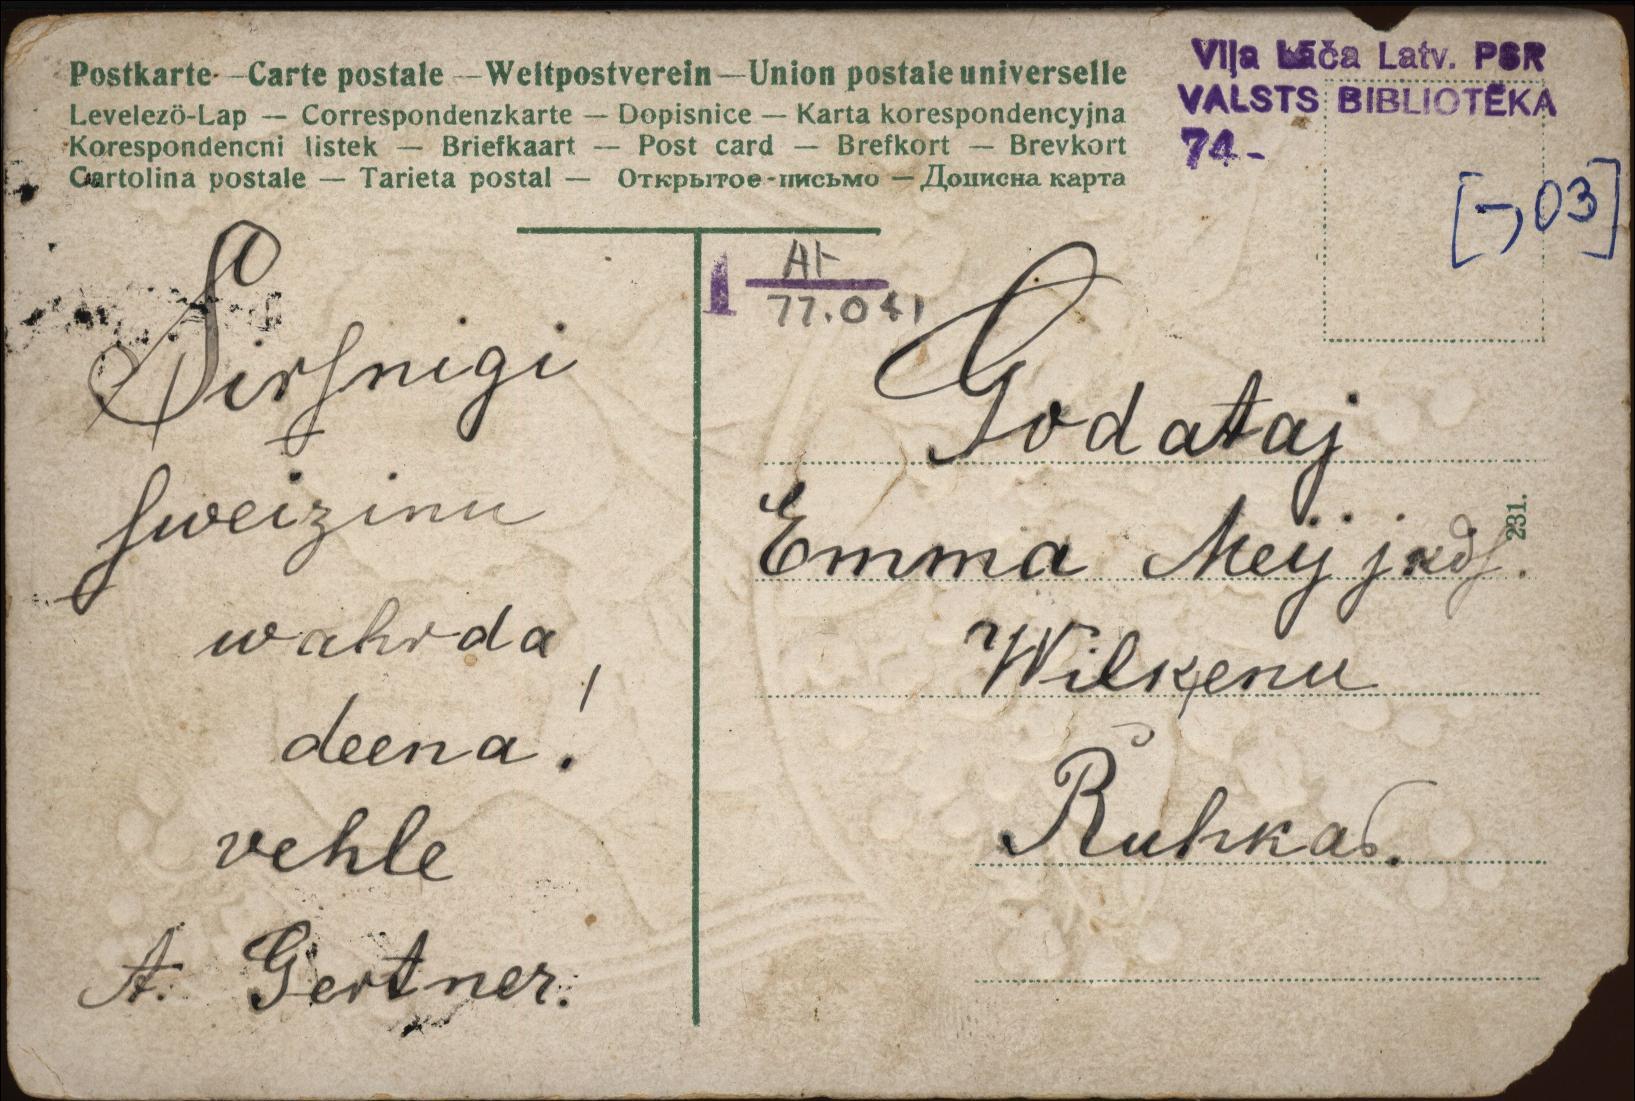 Postkarte — Carte postale — Weltpostverein — Union postale universelle
Levelezö-Lap — Correspondenzkarte — Dopisnice — Karta korespondencyjna
Korespondencni listek — Briefkaart — Post card — Brefkort — Brevkort
Cartolina postale — Tarieta postal — Открытое-письмо — Дописна карта
Viļa Lāča Latv. PSR
VALSTS BIBLIOTĒKA
74-
[-,03]
At
77.041
Sirſnigi
ſweizinu
wahrda
deena!
vehle
A. Gertner.
Godataj
Emma Meij jkdſ.
Wilkenu
Ruhkas.
231.